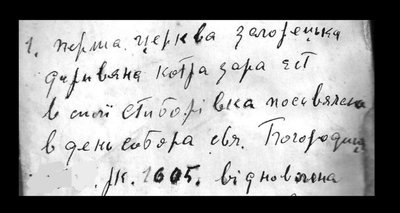 1. перша церква загорецька
деривяна котра зара єст
в силі Стиборівка посвячена
в день собора св. Богородиці
рк. 1605. відновлена